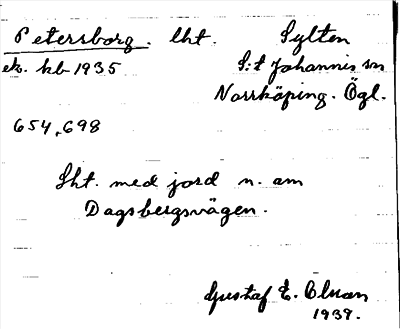 Petersborg. lht. Sylten
ek. kb 1935 S:t Johannis sn
Norrköping. Ögl.
654,698
Lht. med jord n. om
Dagsbergsvägen.
Gustaf E. Olman
1937.